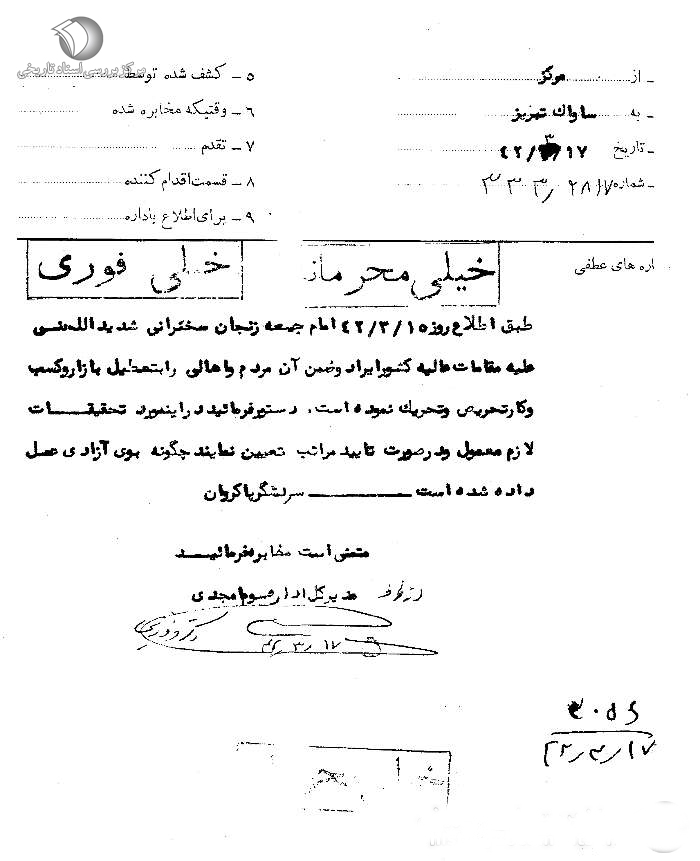 مرکز بررسی اسناد تاریخی
ـ از مرکز
ـ به ساواک تبریز
ـ تاریخ ۴۲/۳/۱۷
ـ شماره ۳۳۳/۲۸۱۷
۵ ـ کشف شده توسط
۶ ـ وقتیکه مخابره شده
۷ ـ تقدم
۸ ـ قسمت اقدام کننده
۹ ـ برای اطلاع باداره
اره های عطفی
خیلی محرمانه
خیلی فوری
طبق اطلاع روز ۴۲/۳/۱۵ امام جمعه زنجان سخنرانی شدید اللحنی
علیه مقامات عالیه کشور ایراد وضمن آن مردم واهالی را بتعطیل بازار وکسب
وکار تحریص وتحریک نموده است. دستور فرمائید در اینمورد تحقیقـــات
لازم معمول ودر صورت تایید مراتب تعیین نمایند چگونه بوی آزادی عمل
داده شده است ــــــــ سرلشگر پاکروان
متمنی است مخابره فرمائیـــد
از طرف مدیرکل اداره سوم امجدی
۴۲/۳/۱۷
۴۲/۳/۱۷